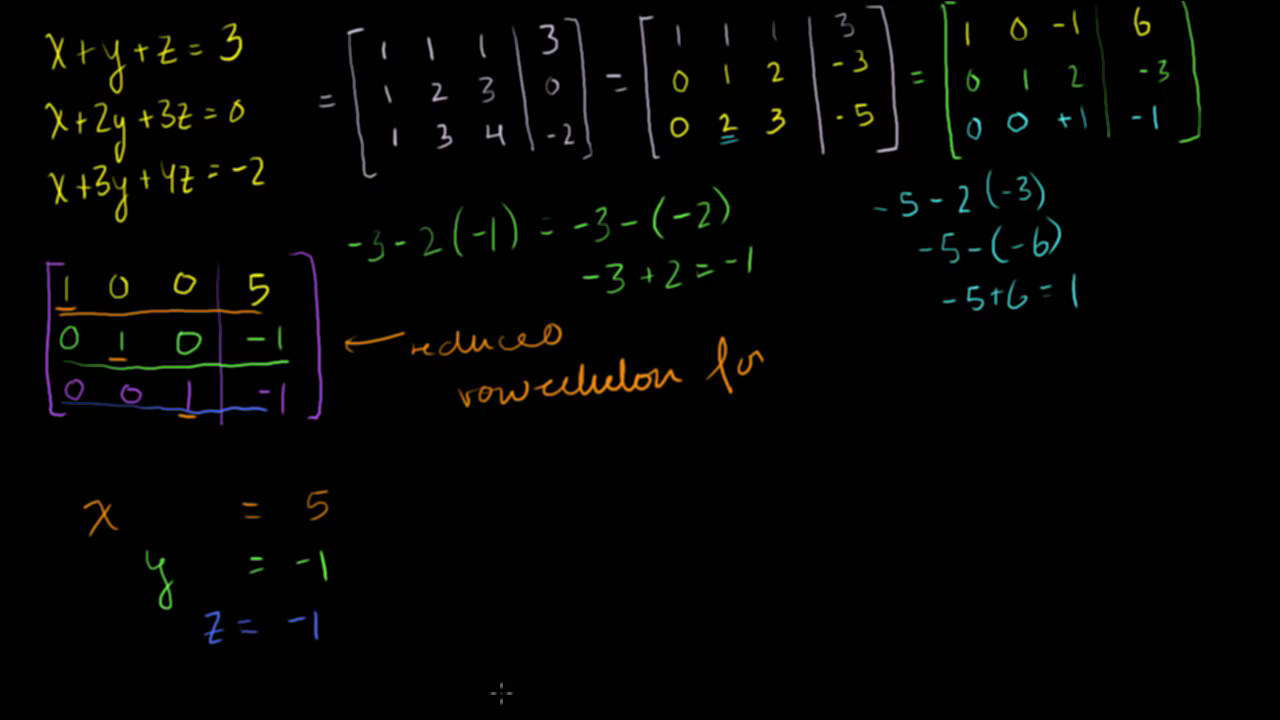 x + y + z = 3
x + 2y + 3z = 0
x + 3y + 4z = -2
= [ 1 1 1 | 3 ]
[ 1 2 3 | 0 ]
[ 1 3 4 | -2 ]
= [ 1 1 1 | 3 ]
[ 0 1 2 | -3 ]
[ 0 2 3 | -5 ]
= [ 1 0 -1 | 6 ]
[ 0 1 2 | -3 ]
[ 0 0 +1 | -1 ]
-3 - 2(-1) = -3 - (-2)
-3 + 2 = -1
-5 - 2(-3)
-5 - (-6)
-5 + 6 = 1
[ 1 0 0 | 5 ]
[ 0 1 0 | -1 ]
[ 0 0 1 | -1 ]
reduced
row echelon for
x = 5
y = -1
z = -1